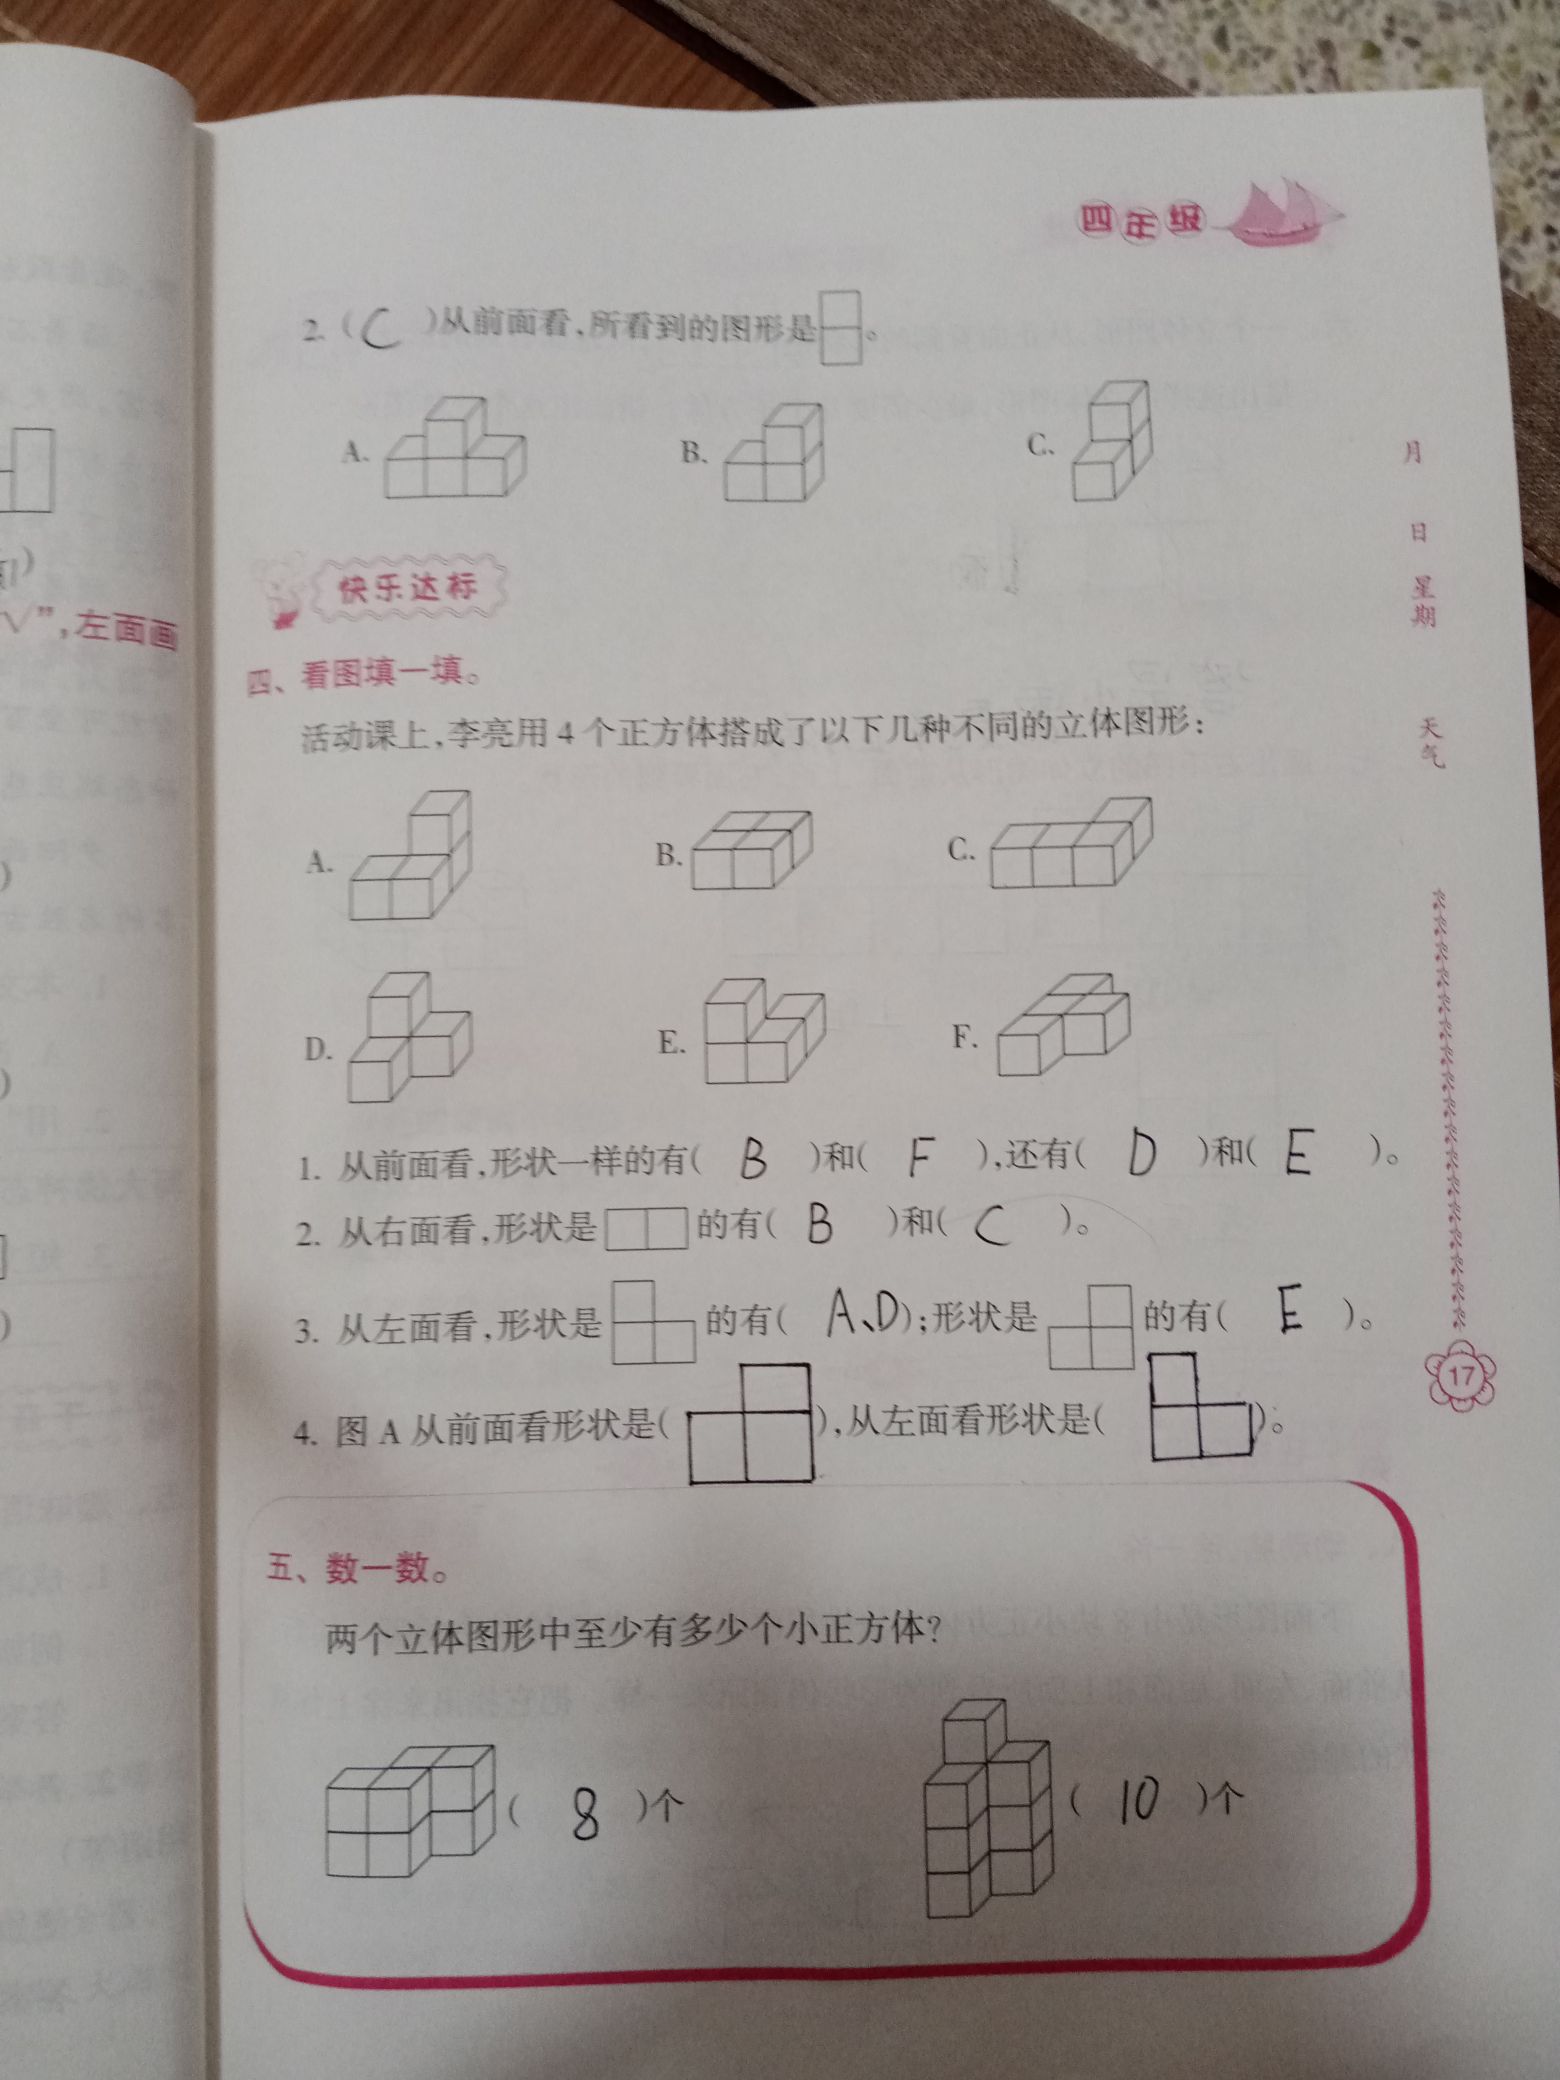 四年级
2.（ C ）从前面看,所看到的图形是 。
A. B. C.
月
日
星期
天气
快乐达标
”,左面画
四、看图填一填。
活动课上,李亮用4个正方体搭成了以下几种不同的立体图形:
A. B. C.
D. E. F.
1. 从前面看,形状一样的有( B )和( F ),还有( D )和( E )。
2. 从右面看,形状是 的有( B )和( C )。
3. 从左面看,形状是 的有( A、D );形状是 的有( E )。
4. 图A从前面看形状是( ),从左面看形状是( )。
17
五、数一数。
两个立体图形中至少有多少个小正方体?
( 8 )个 ( 10 )个